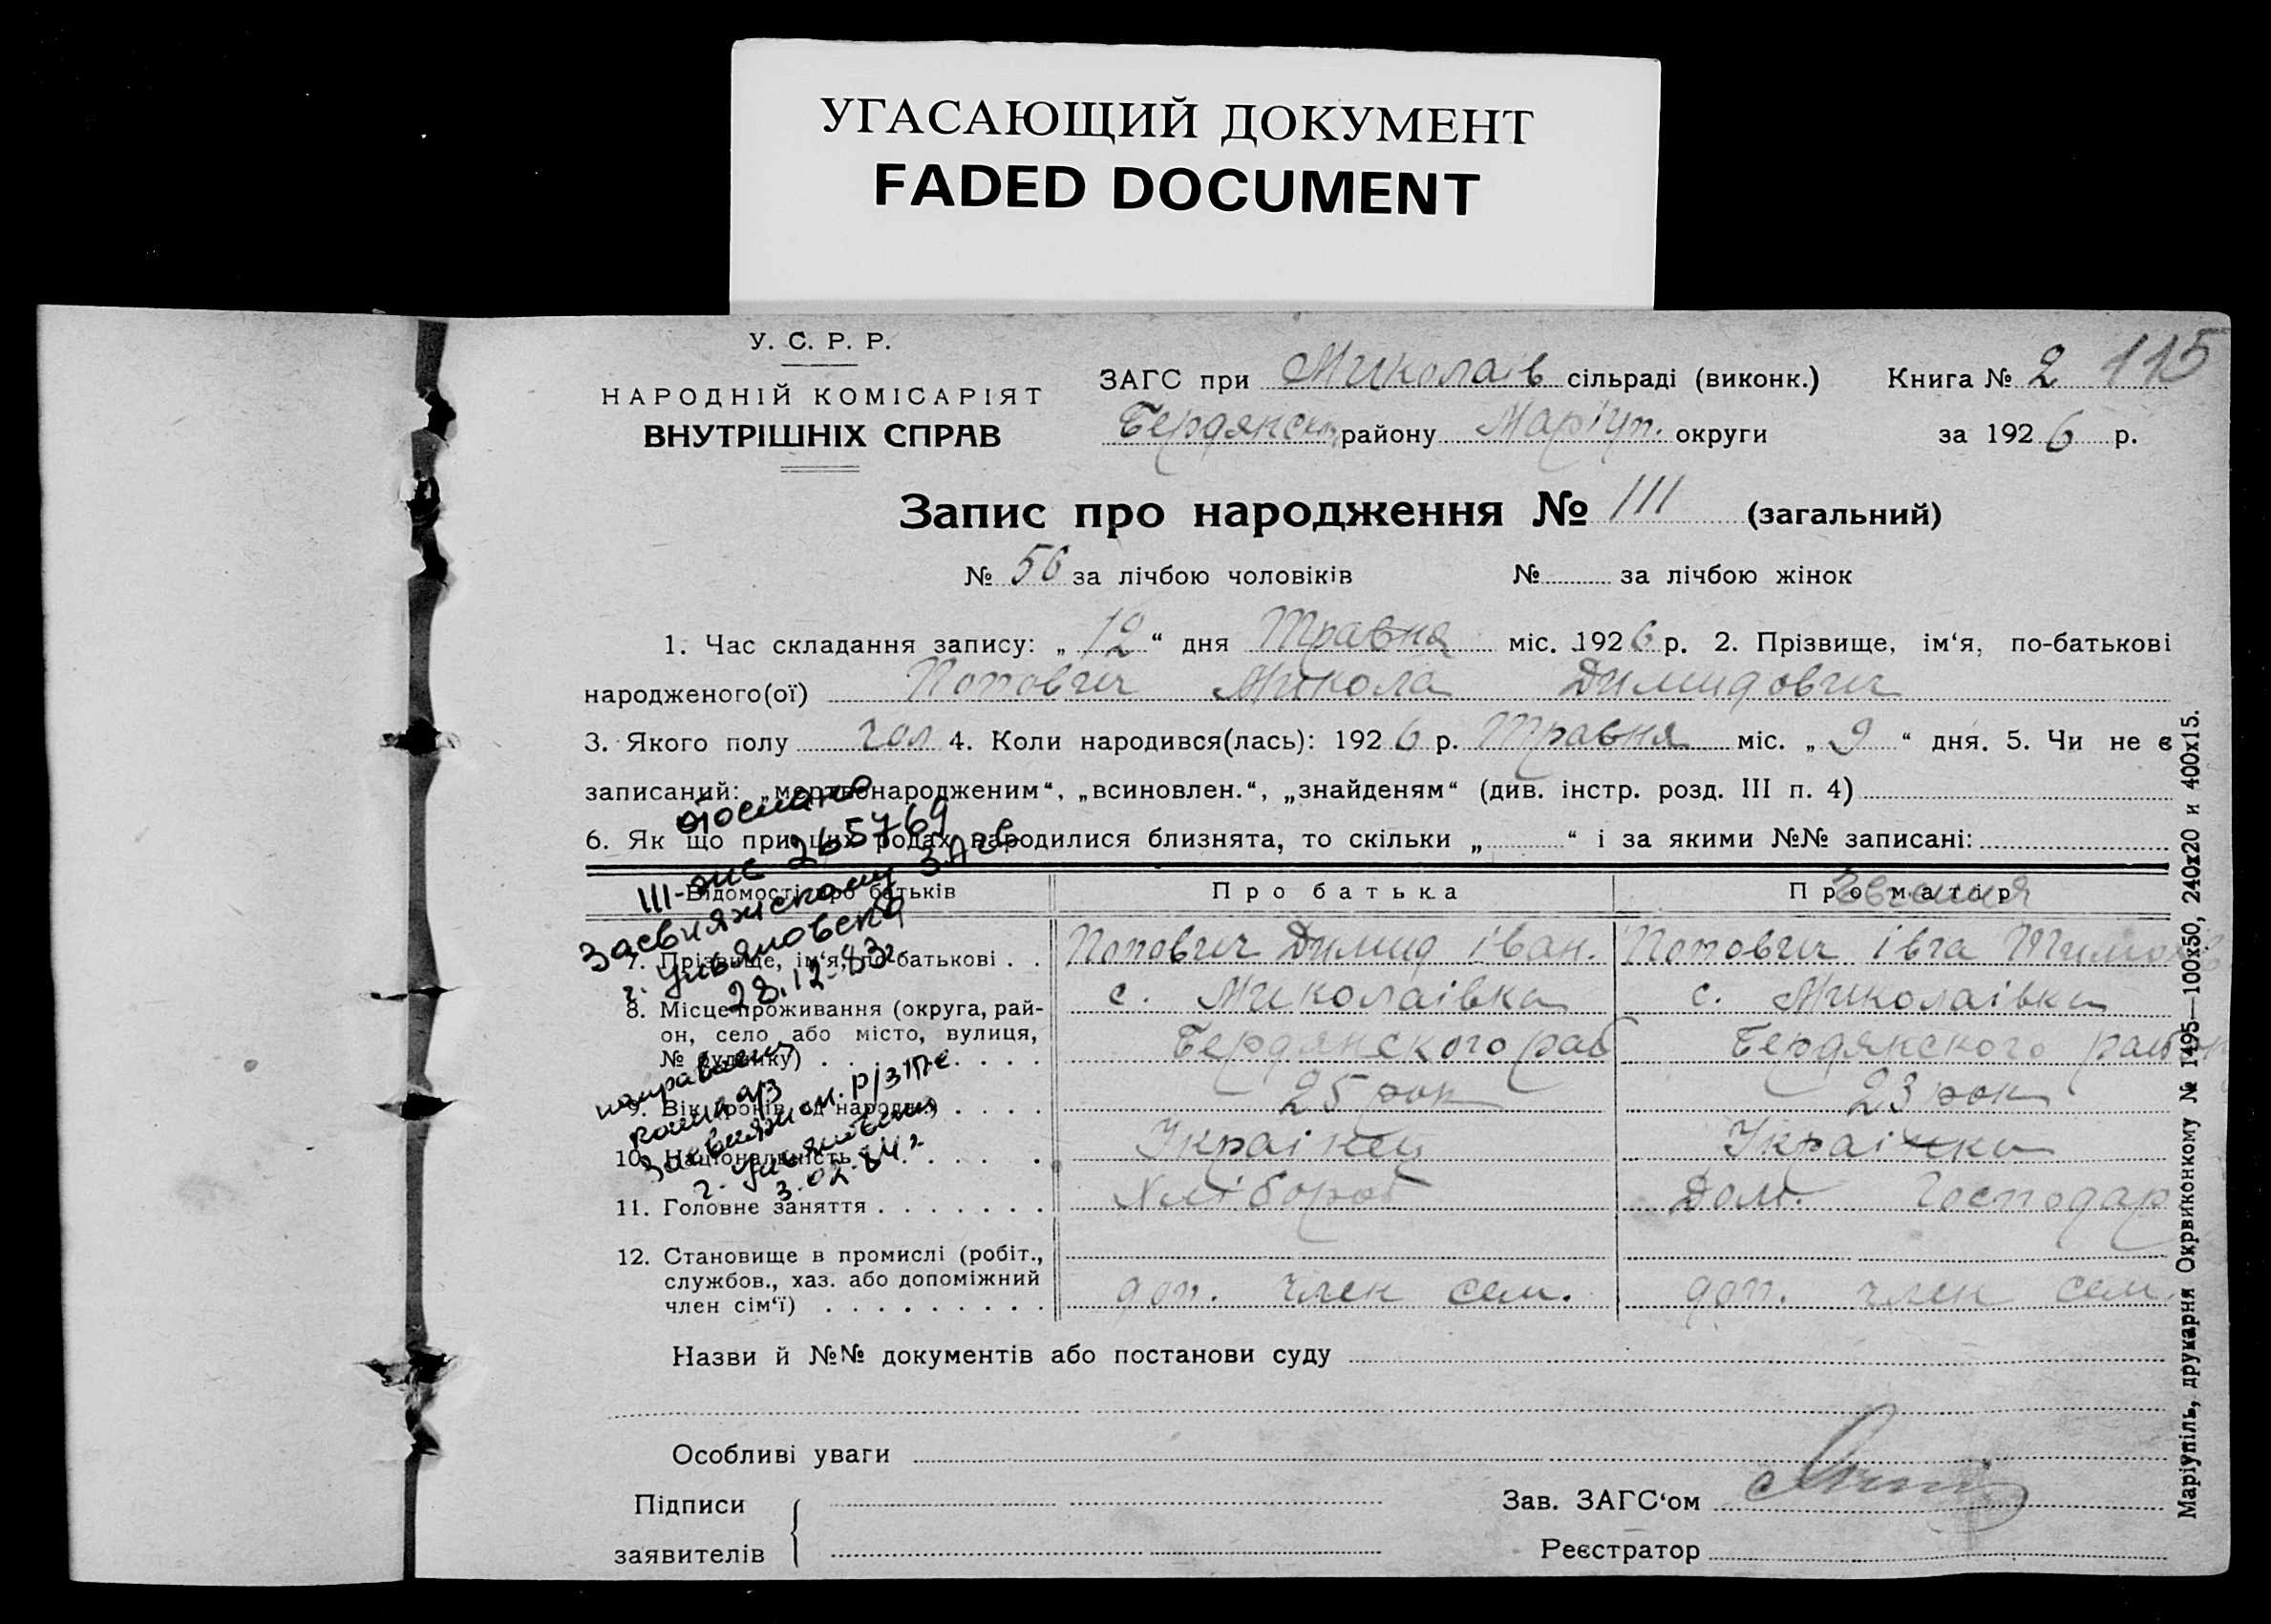 УГАСАЮЩИЙ ДОКУМЕНТ
FADED DOCUMENT
У. С. Р. Р.
НАРОДНІЙ КОМІСАРІЯТ
ВНУТРІШНІХ СПРАВ
ЗАГС при Миколаїв сільраді (виконк.) Книга № 2 115
Бердянськ району Маріуп. округи за 1926 р.
Запис про народження № 111 (загальний)
№ 56 за лічбою чоловіків № за лічбою жінок
1. Час складання запису: „12“ дня Травня міс. 1926 р. 2. Прізвище, ім‘я, по-батькові
народженого(ої) Попович Микола Димидович
3. Якого полу чол 4. Коли народився(лась): 1926 р. Травня міс. „9“ дня. 5. Чи не є
записаний: „мертвонародженим“, „всиновлен.“, „знайденям“ (див. інстр. розд. III п. 4)
6. Як що при цих родах народилися близнята, то скільки „ “ і за якими №№ записані:
Відомості про батьків Про батька Про матір
Евгения
7. Прізвище, ім‘я, по-батькові . . Попович Димид Іван. Попович Івга
8. Місце проживання (округа, рай-
он, село або місто, вулиця,
№ будинку) . . . . . . . . .
с. Миколаівка с. Миколаівка
Бердянского рай Бердянского
9. Вік (років од народж.) . . . . 25 рок 23 рок
10. Національність . . . . . . . Украінец Украінка
11. Головне заняття . . . . . . . Хлібороб Дом. Господар
12. Становище в промислі (робіт.,
службов., хаз. або допоміжний
член сім‘ї) . . . . . . . . .
доп. член сем. доп. член сем.
отослано
III-ЖС 265769
Засвияжскому Загс
г. Ульяновска
28.12.83г
направлен
г. Ульяновска
3.02.84г
Назви й №№ документів або постанови суду
Особливі уваги
Підписи
заявителів
Зав. ЗАГС‘ом
Реєстратор
Маріупіль, друкарня Окрвиконкому № 1495—100х50, 240х20 и 400х15.